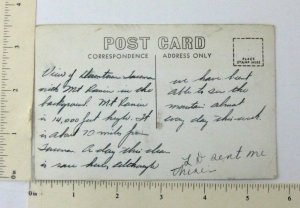 POST CARD
CORRESPONDENCE
ADDRESS ONLY
PLACE
STAMP HERE
View of Downtown Tacoma
with Mt Ranier in the
background. Mt Ranier
is 14,000 feet high. It
is about 70 miles from
Tacoma. A day this clear
is rare here, although
we have been
able to see the
mountain almost
every day this week.
sent me
these
1
2
3
4
1
2
3
4
5
6